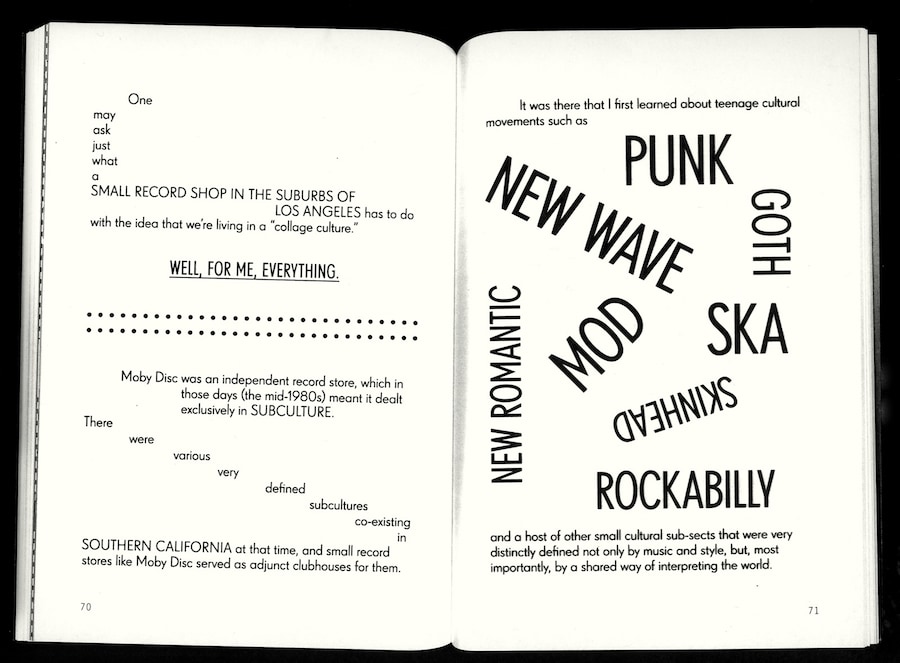 One
may
ask
just
what
a
SMALL RECORD SHOP IN THE SUBURBS OF
LOS ANGELES has to do
with the idea that we're living in a “collage culture.”
WELL, FOR ME, EVERYTHING.
Moby Disc was an independent record store, which in
those days (the mid-1980s) meant it dealt
exclusively in SUBCULTURE.
There
were
various
very
defined
subcultures
co-existing
in
SOUTHERN CALIFORNIA at that time, and small record
stores like Moby Disc served as adjunct clubhouses for them.
70
It was there that I first learned about teenage cultural
movements such as
PUNK
NEW WAVE
GOTH
NEW ROMANTIC
MOD
SKA
SKINHEAD
ROCKABILLY
and a host of other small cultural sub-sects that were very
distinctly defined not only by music and style, but, most
importantly, by a shared way of interpreting the world.
71